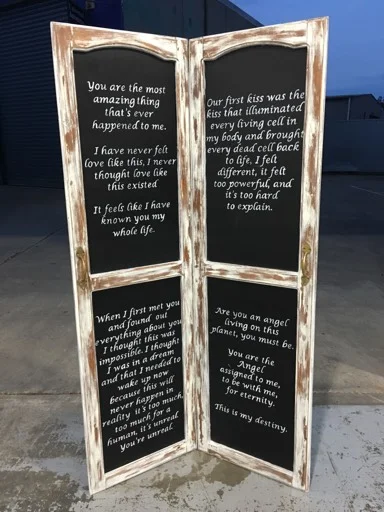 You are the most
amazing thing
that's ever
happened to me.
I have never felt
love like this, I never
thought love like
this existed
It feels like I have
known you my
whole life.
Our first kiss was the
kiss that illuminated
every living cell in
my body and brought
every dead cell back
to life, I felt
different, it felt
too powerful, and
it's too hard
to explain.
When I first met you
and found out
everything about you
I thought this was
impossible. I thought
I was in a dream
and that I needed to
wake up now
because this will
never happen in
reality it's too much,
too much for a
human, it's unreal
you're unreal.
Are you an angel
living on this
planet, you must be.
You are the
Angel
assigned to me,
to be with me,
for eternity.
This is my destiny.